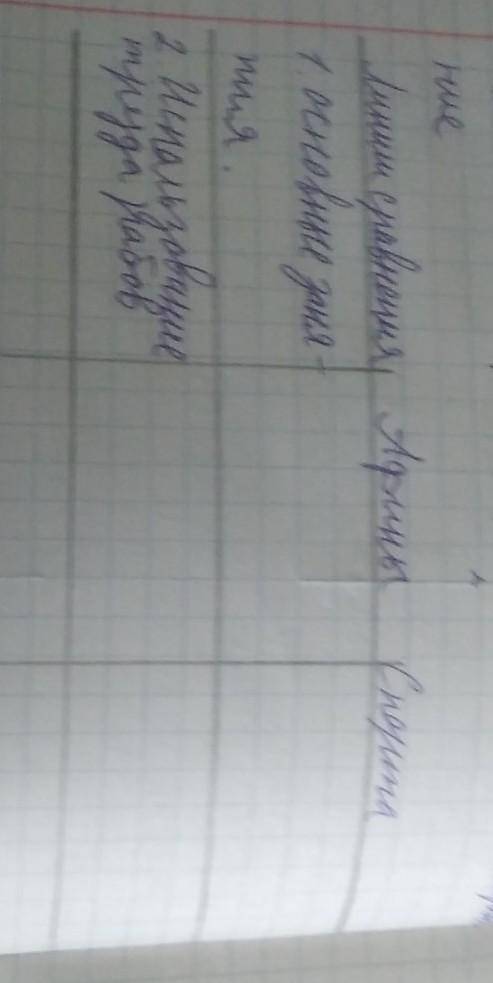 ние
Линии сравнения Афины Спарта
1. основные заня-
тия.
2. Использование
труда рабов